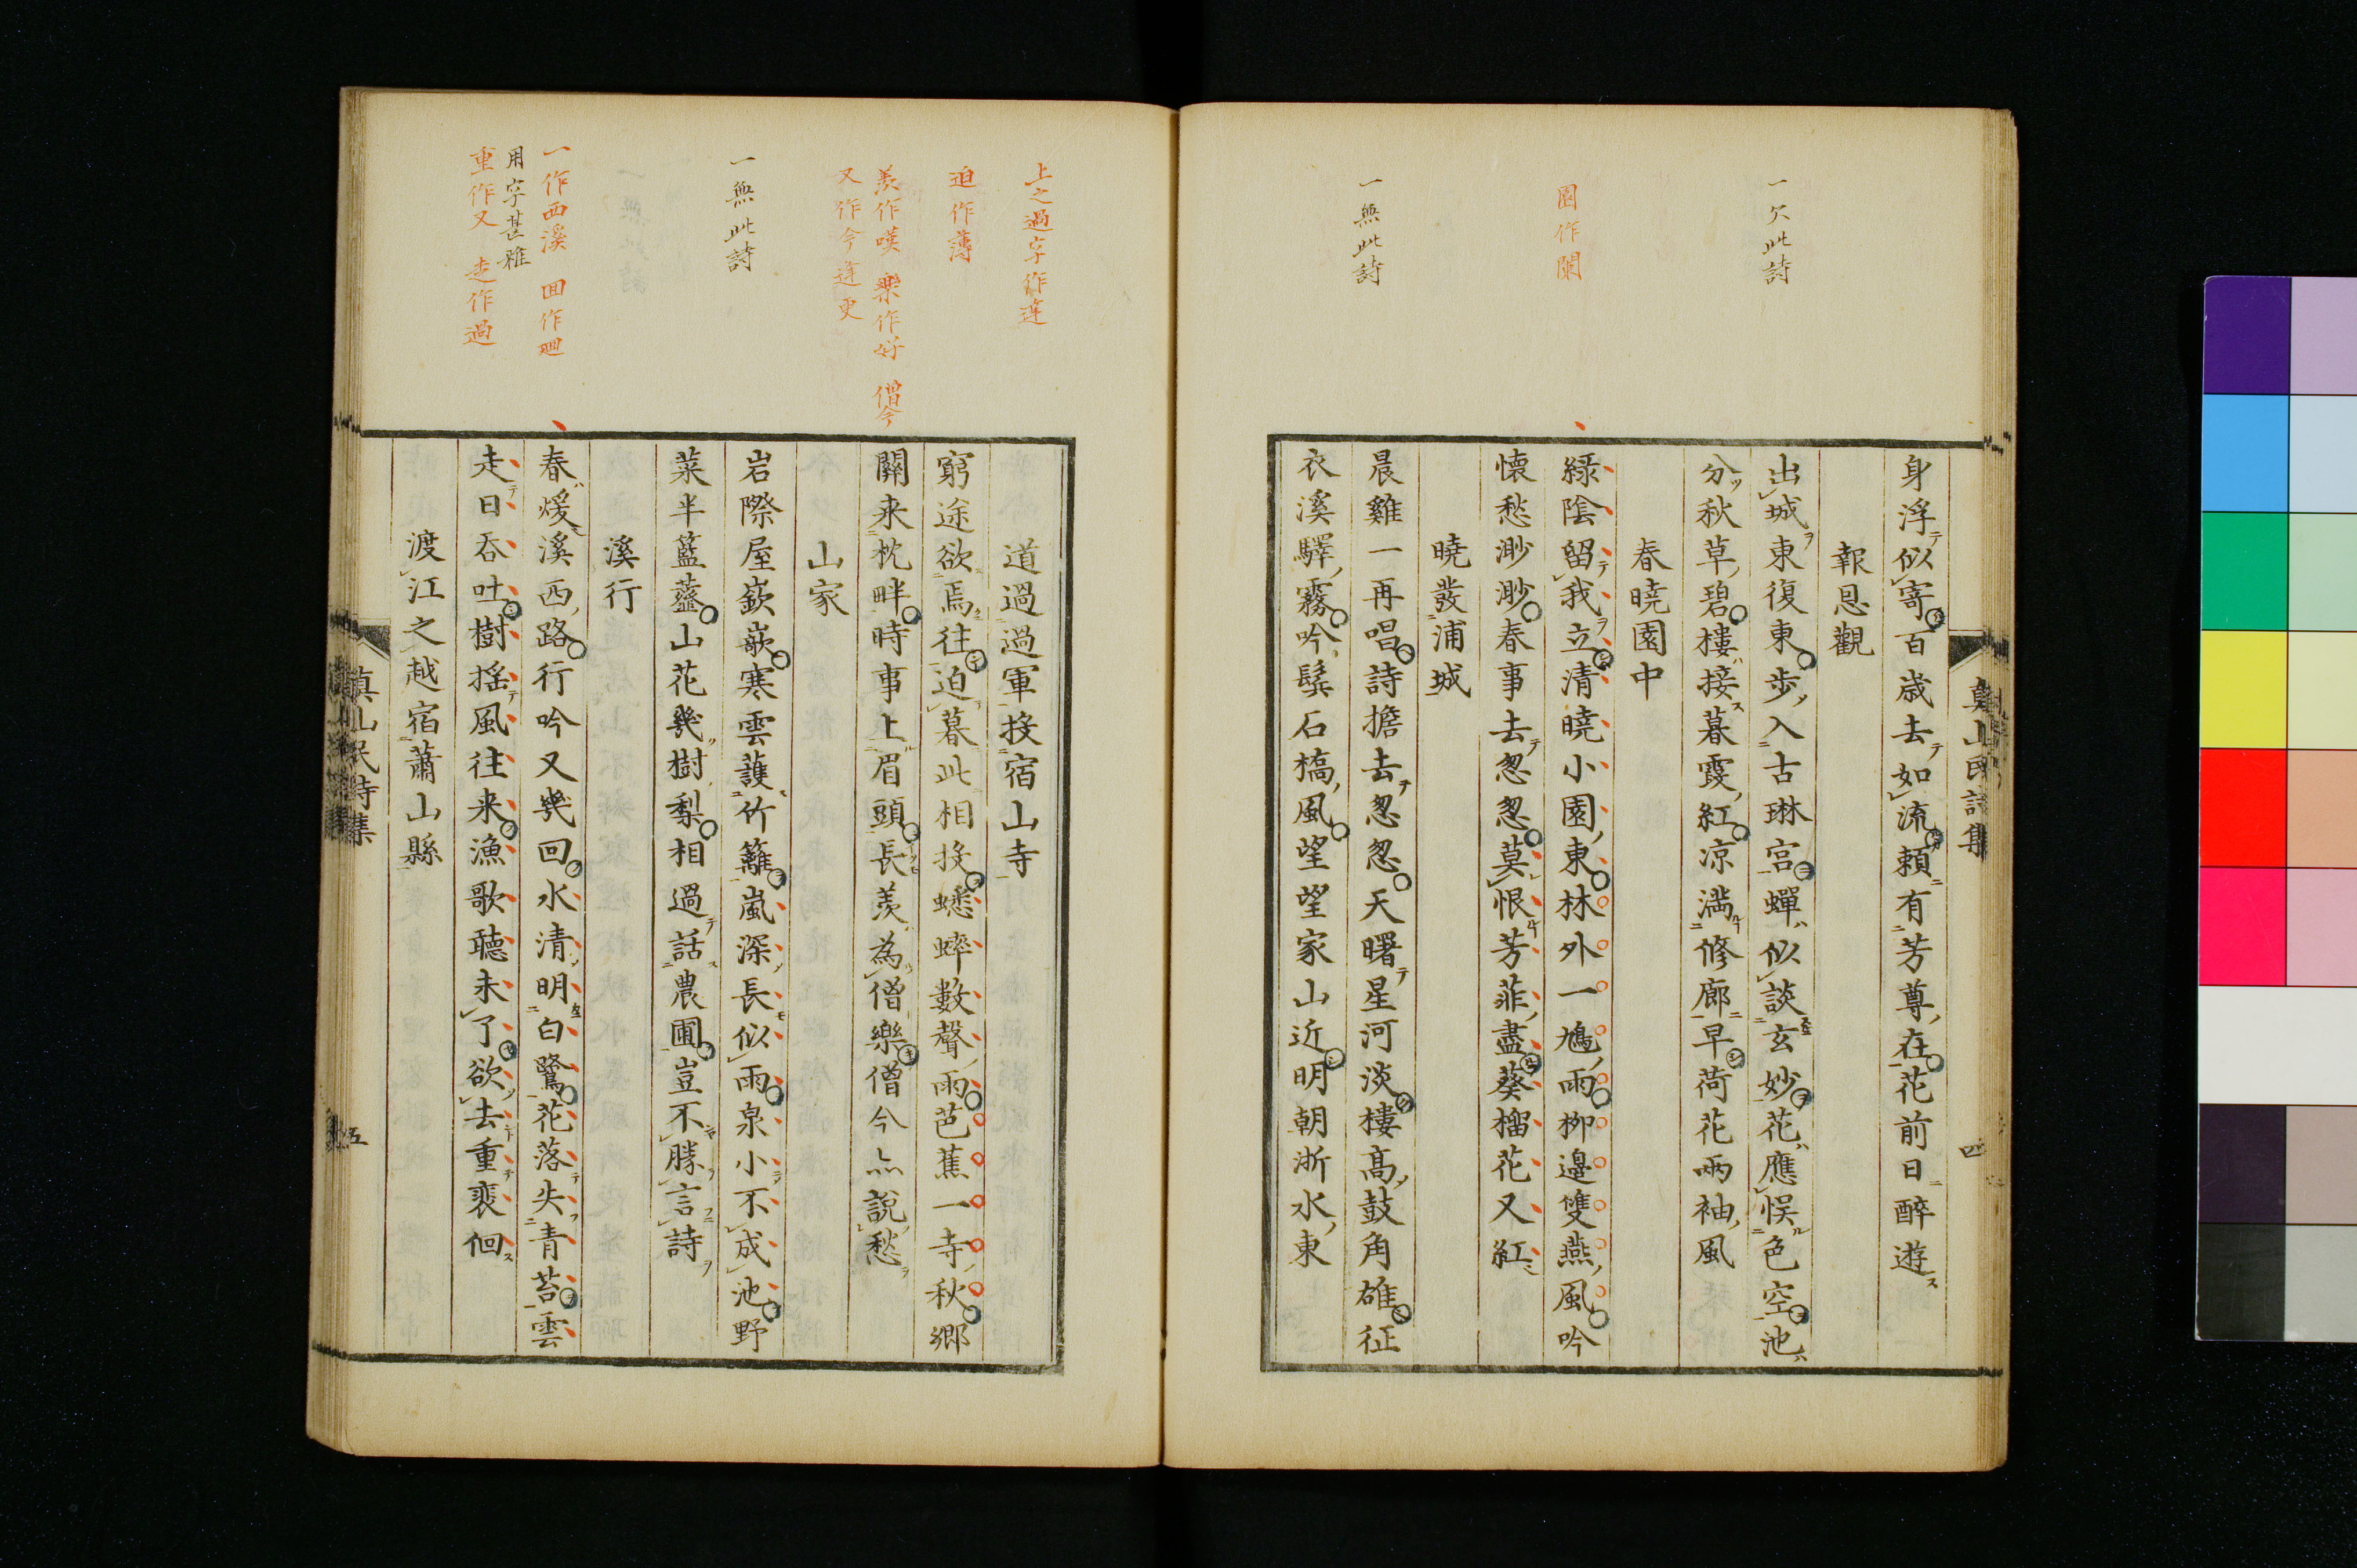 一欠此詩
園作闌
一無此詩
真山民詩集
四
身浮似寄百歳去如流頼有芳尊在花前日醉遊
報恩觀
出城東復東歩入古琳宮蟬似談玄妙花應悮色空池
分秋草碧樓接暮霞紅凉満修廊早荷花両袖風
春曉園中
緑陰留我立清曉小園東林外一鳩雨柳邊雙燕風吟
懐愁渺渺春事去怱怱莫恨芳菲盡葵榴花又紅
曉發浦城
晨雞一再唱詩擔去怱怱天曙星河淡樓高鼓角雄征
衣溪驛霧吟鬂石橋風望望家山近明朝浙水東
上之過字作逹
迫作薄
羨作嘆 樂作好 僧今
又作今逹更
一無此詩
一作西溪 回作廻
用字甚雅
重作又 走作過
道過過軍投宿山寺
窮途欲焉往迫暮此相投蟋蟀數聲雨芭蕉一寺秋郷
關来枕畔時事上眉頭長羨為僧樂僧今亦説愁
山家
岩際屋嶔嶔寒雲護竹籬嵐深長似雨泉小不成池野
菜半籃薤山花幾樹梨相過話農圃豈不勝言詩
溪行
春煖溪西路行吟又幾回水清明白鷺花落失青苔雲
走日呑吐樹揺風往来漁歌聴未了欲去重裵徊
渡江之越宿蕭山縣
真山民詩集
五